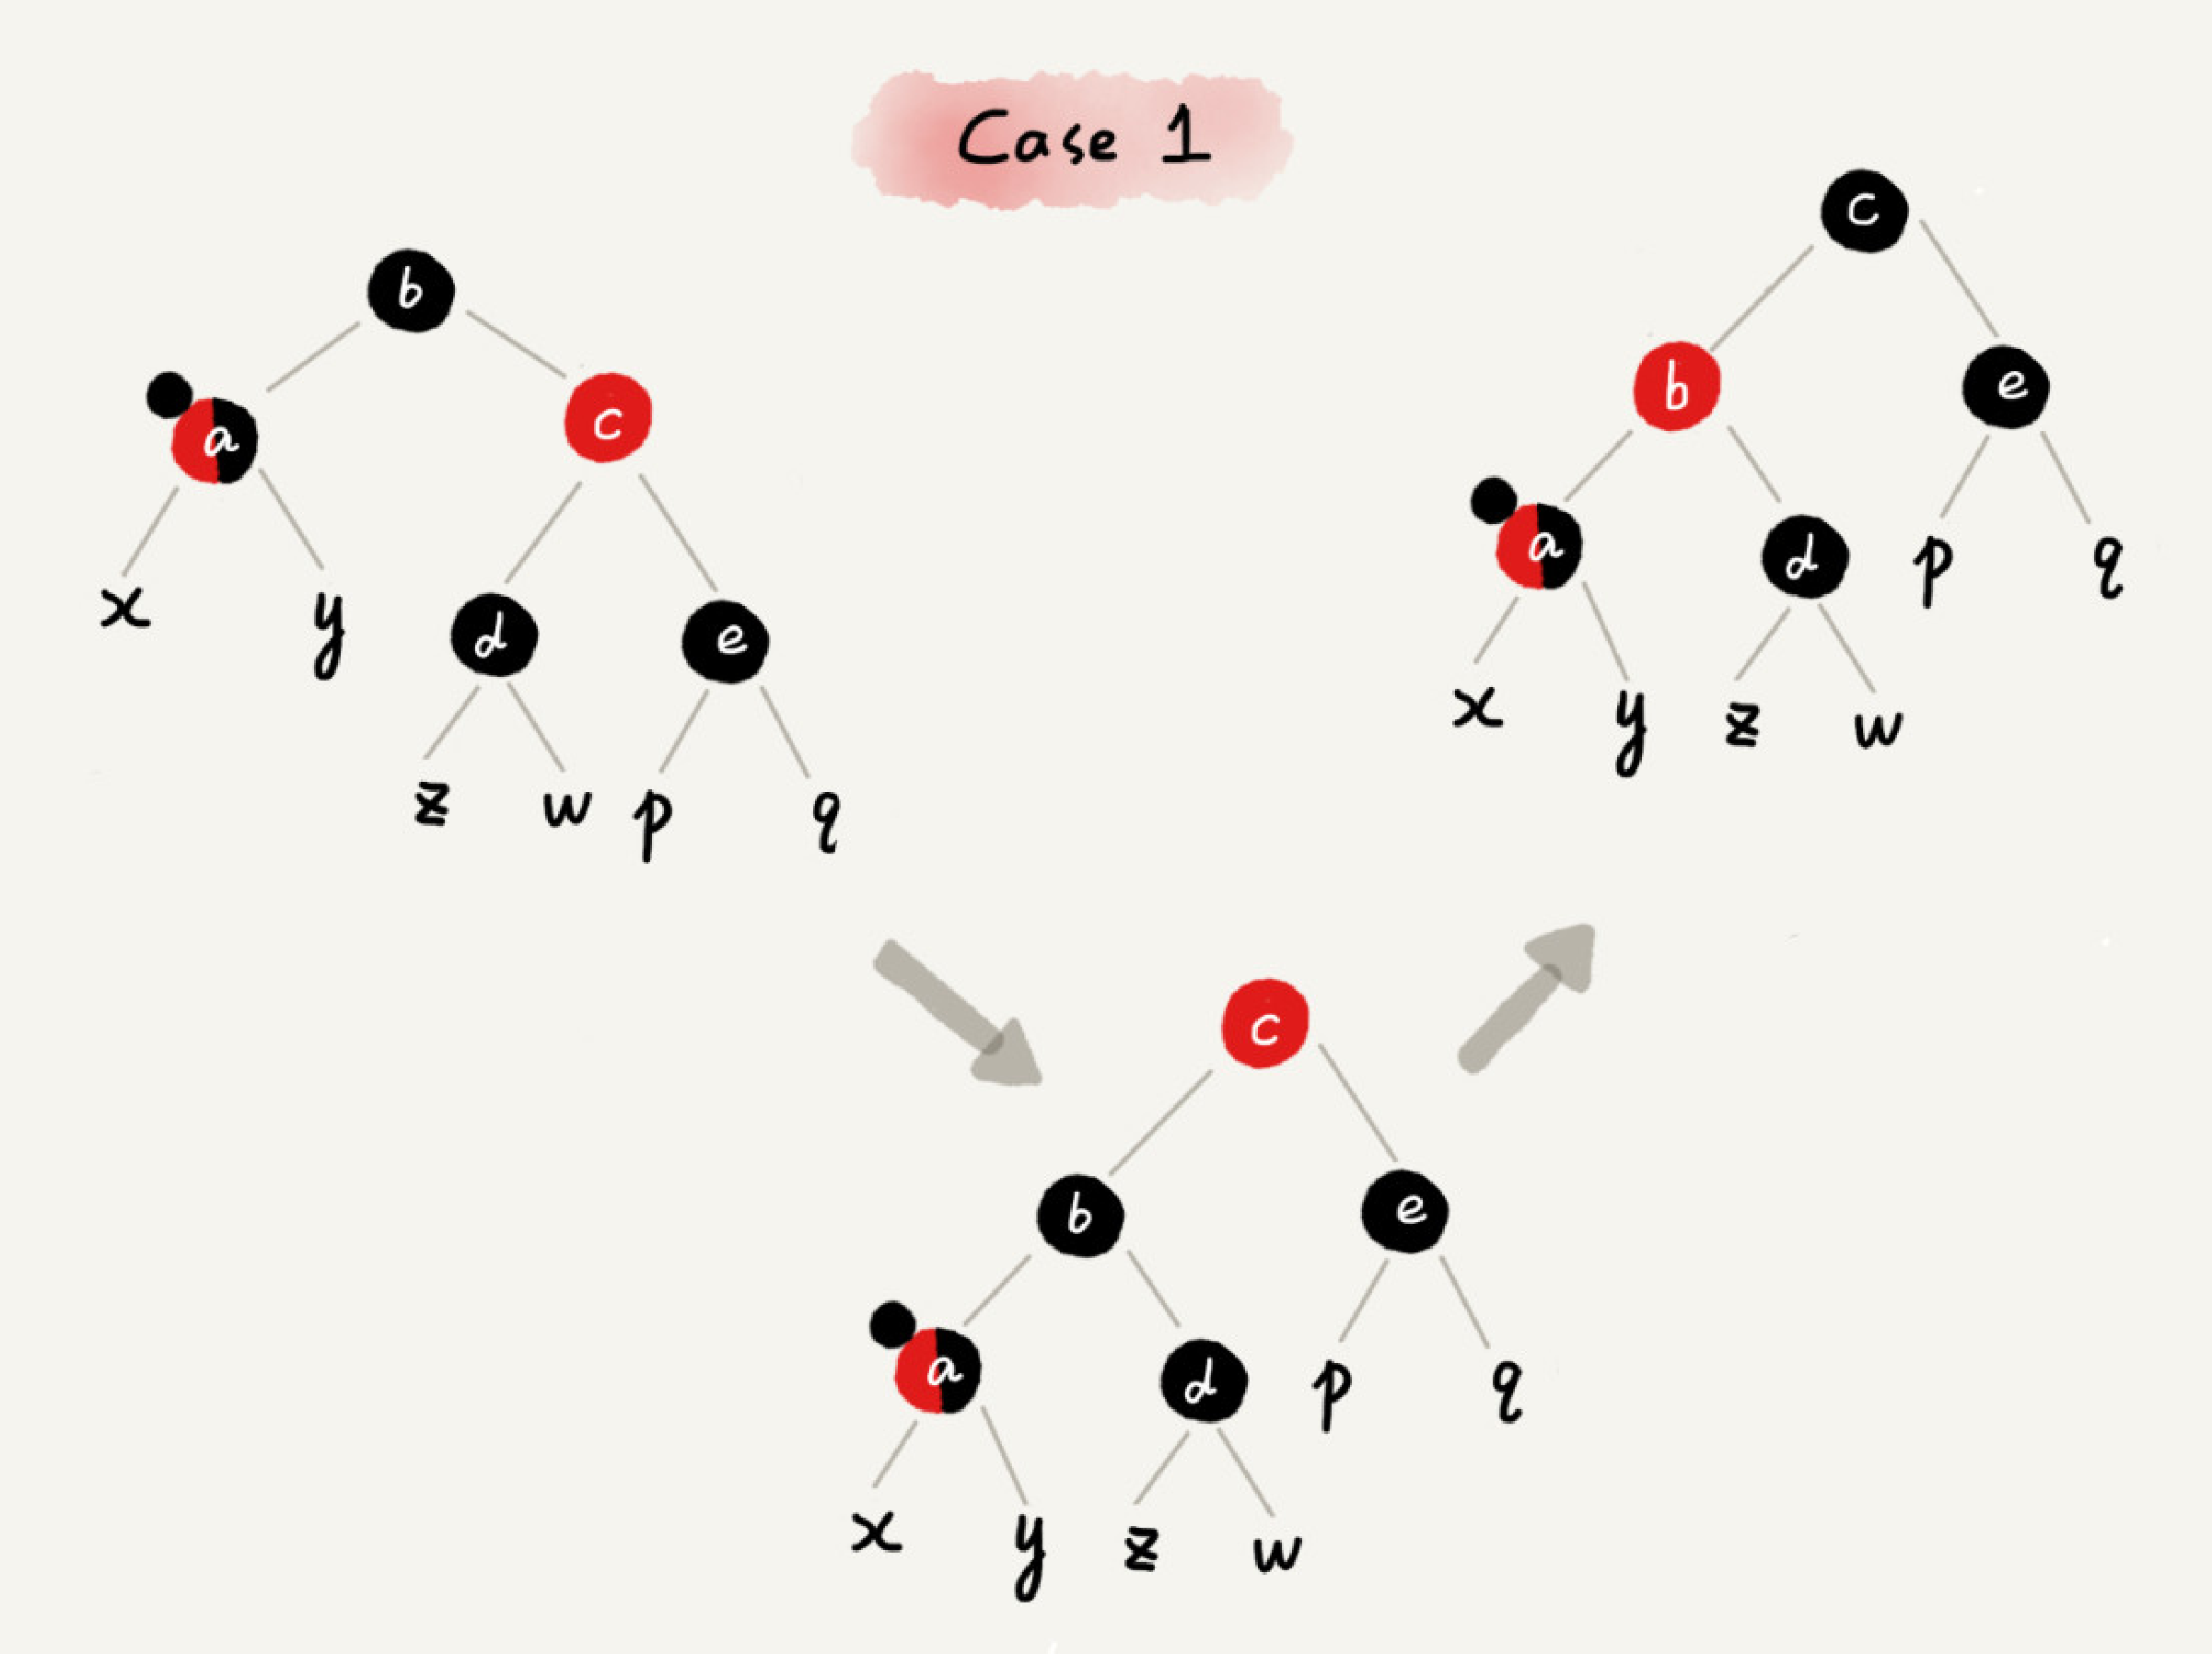 Case 1
b
a
c
x
y
d
e
z
w
p
q
c
b
e
a
d
p
q
x
y
z
w
c
b
e
a
d
p
q
x
y
z
w